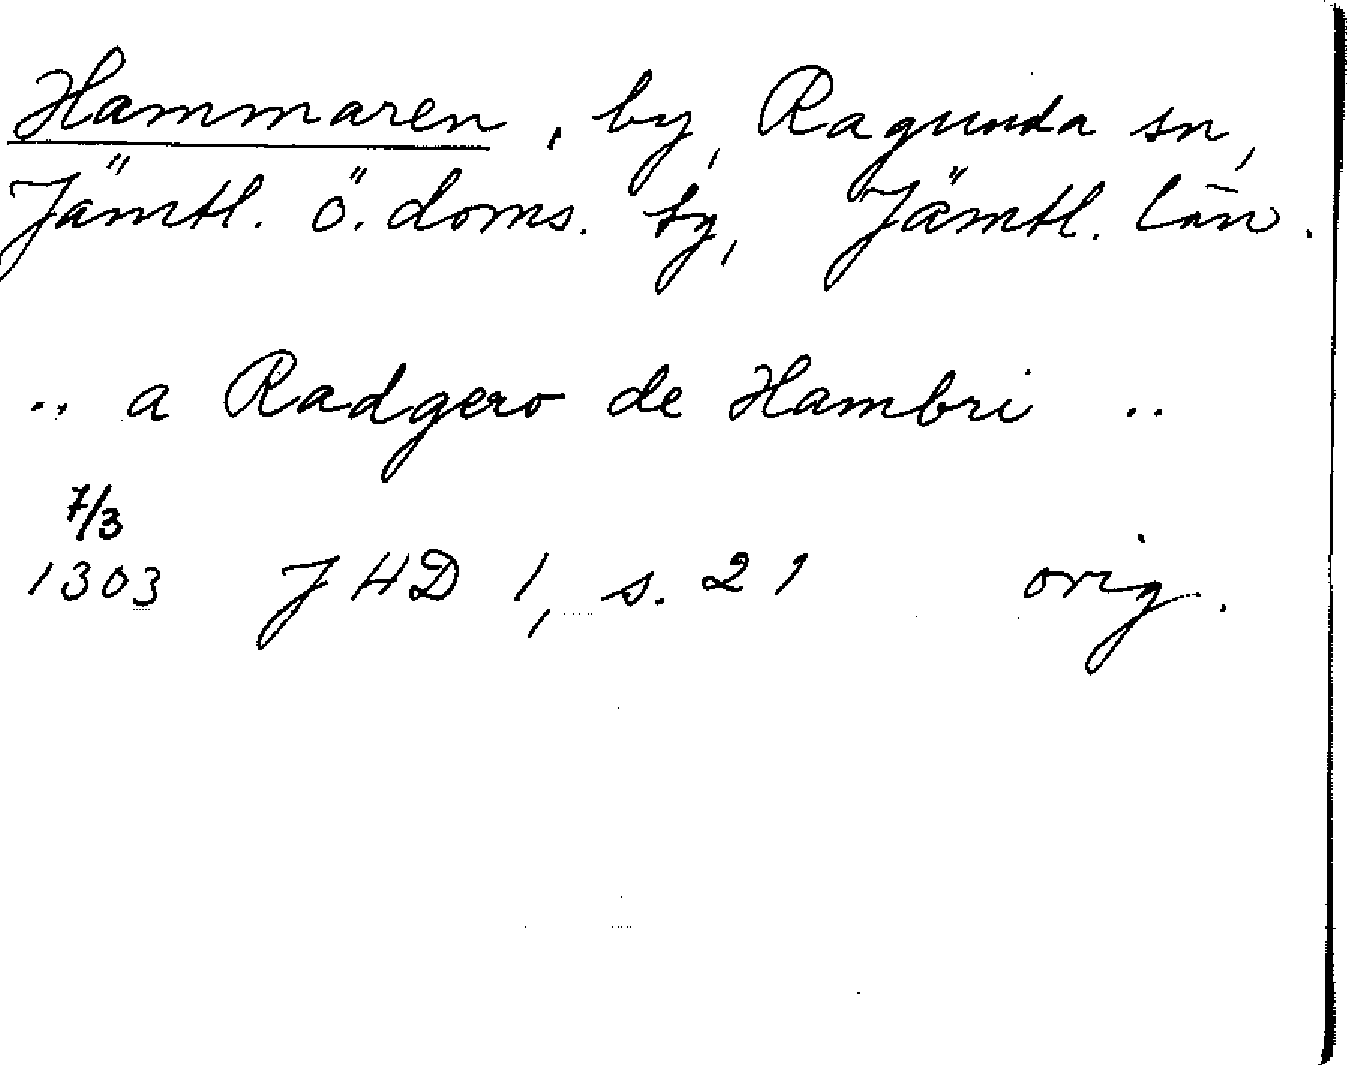 Hammaren, by, Ragunda sn,
Jämtl. ö. doms. by, Jämtl. län.
.. a Radgero de Hambri ..
7/3
1303 JHD 1, s. 21 orig.